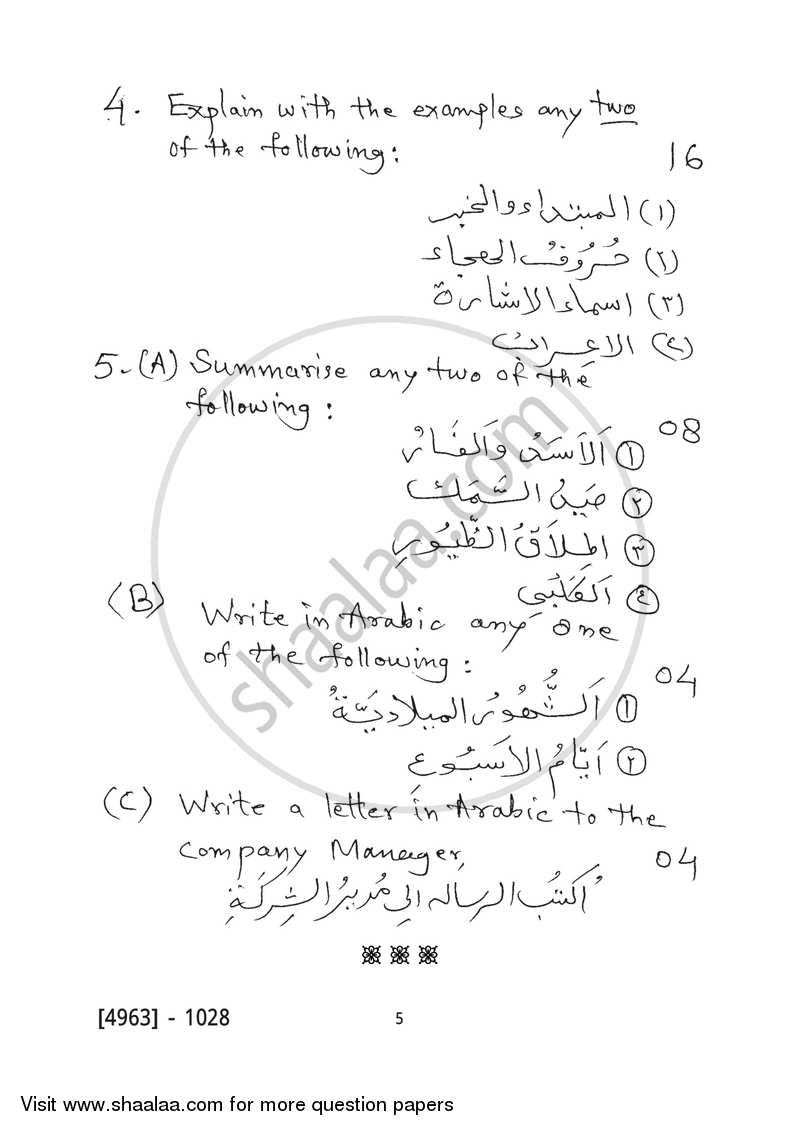 4. Explain with the examples any two
of the following: 16
(١) المبتداء والخبر
(٢) حُرُوفُ الهجاء
(٣) اسماء الاشارة
(٤) الاعراب
5. (A) Summarise any two of the
following: 08
① اَلاَسَدُ وَالفَارُ
② صَيدُ السَّمَك
③ اِطلاَقُ الطُّيُورِ
④ اَلكَلبَي
(B) Write in Arabic any one
of the following: 04
① اَلشُّهُورُ الميلاديَّةُ
② اَيَّامُ الاَسبُوع
(C) Write a letter in Arabic to the
Company Manager, 04
اُكتُب الرساله الِي مُديرُ الشِركَةِ
[4963] - 1028 5
Visit www.shaalaa.com for more question papers
shaalaa.com